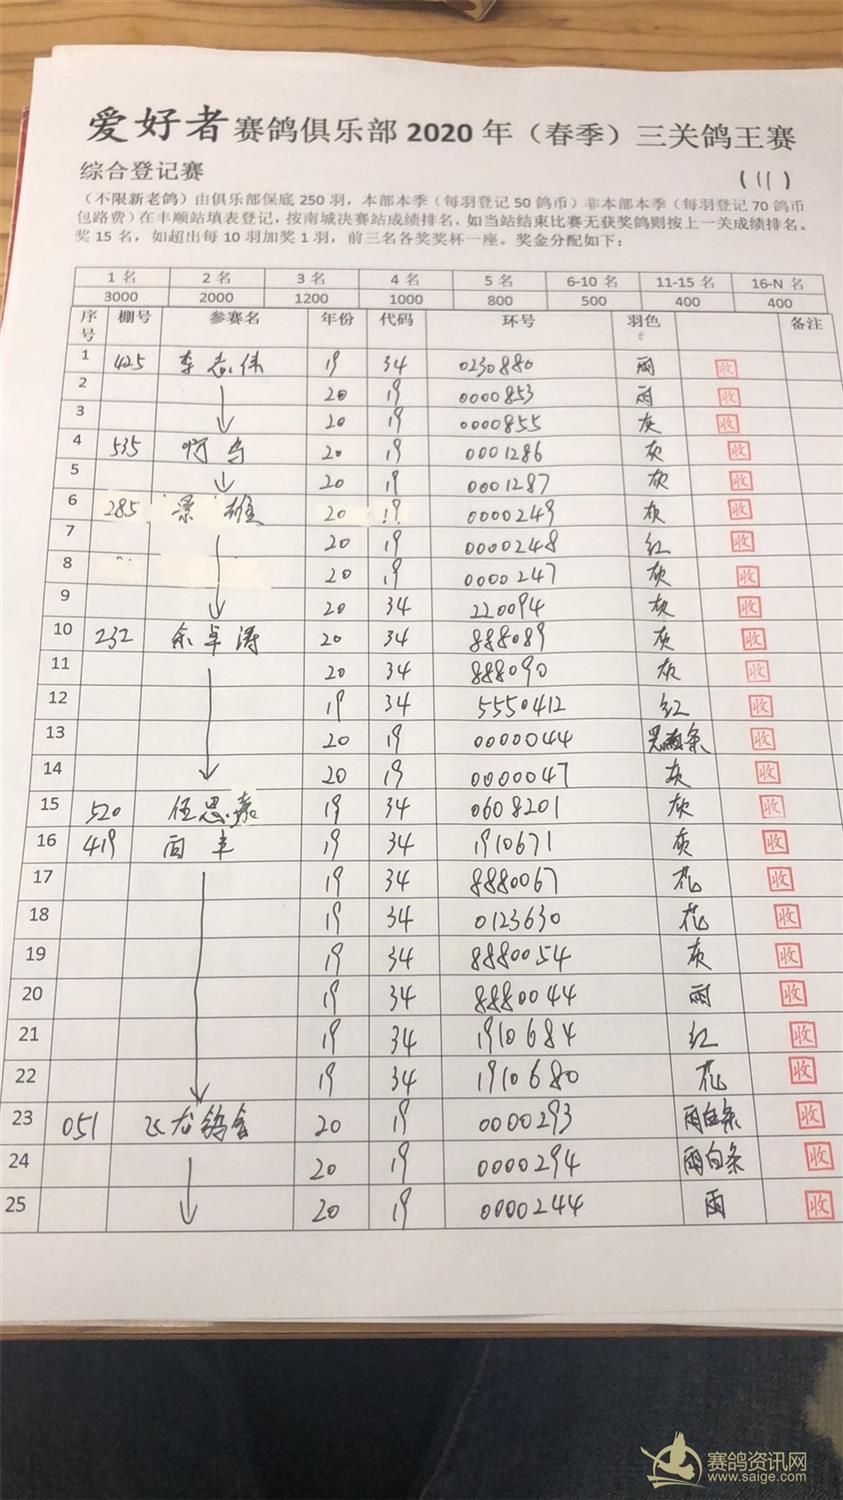 爱好者赛鸽俱乐部 2020 年（春季）三关鸽王赛
综合登记赛
(111)
（不限新老鸽）由俱乐部保底 250 羽，本部本季（每羽登记 50 鸽币）非本部本季（每羽登记 70 鸽币
包路费）在丰顺站填表登记，按南城决赛站成绩排名，如当站结束比赛无获奖鸽则按上一关成绩排名。
奖 15 名，如超出每 10 羽加奖 1 羽，前三名各奖奖杯一座。奖金分配如下：
1 名 2 名 3 名 4 名 5 名 6-10 名 11-15 名 16-N 名
3000 2000 1200 1000 800 500 400 400
序号 棚号 参赛名 年份 代码 环号 羽色 备注
1 425 李志伟 19 34 0230880 雨 收
2 20 19 0000853 雨 收
3 20 19 0000855 灰 收
4 535 啊乌 20 19 0001286 灰 收
5 20 19 0001287 灰 收
6 285 梁雄 20 19 0000249 灰 收
7 20 19 0000248 红 收
8 20 19 0000247 灰 收
9 20 34 220094 灰 收
10 232 余卓涛 20 34 888089 灰 收
11 20 34 888090 灰 收
12 19 34 5550412 红 收
13 20 19 0000044 条 收
14 20 19 0000047 灰 收
15 520 伍思嘉 19 34 0608201 灰 收
16 419 面丰 19 34 1910671 灰 收
17 19 34 8880067 花 收
18 19 34 0123630 花 收
19 19 34 8880054 灰 收
20 19 34 8880044 雨 收
21 19 34 1910684 红 收
22 19 34 1910680 花 收
23 051 飞龙鸽舍 20 19 0000293 雨白条 收
24 20 19 0000294 雨白条 收
25 20 19 0000244 雨 收
赛鸽资讯网
www.saige.com